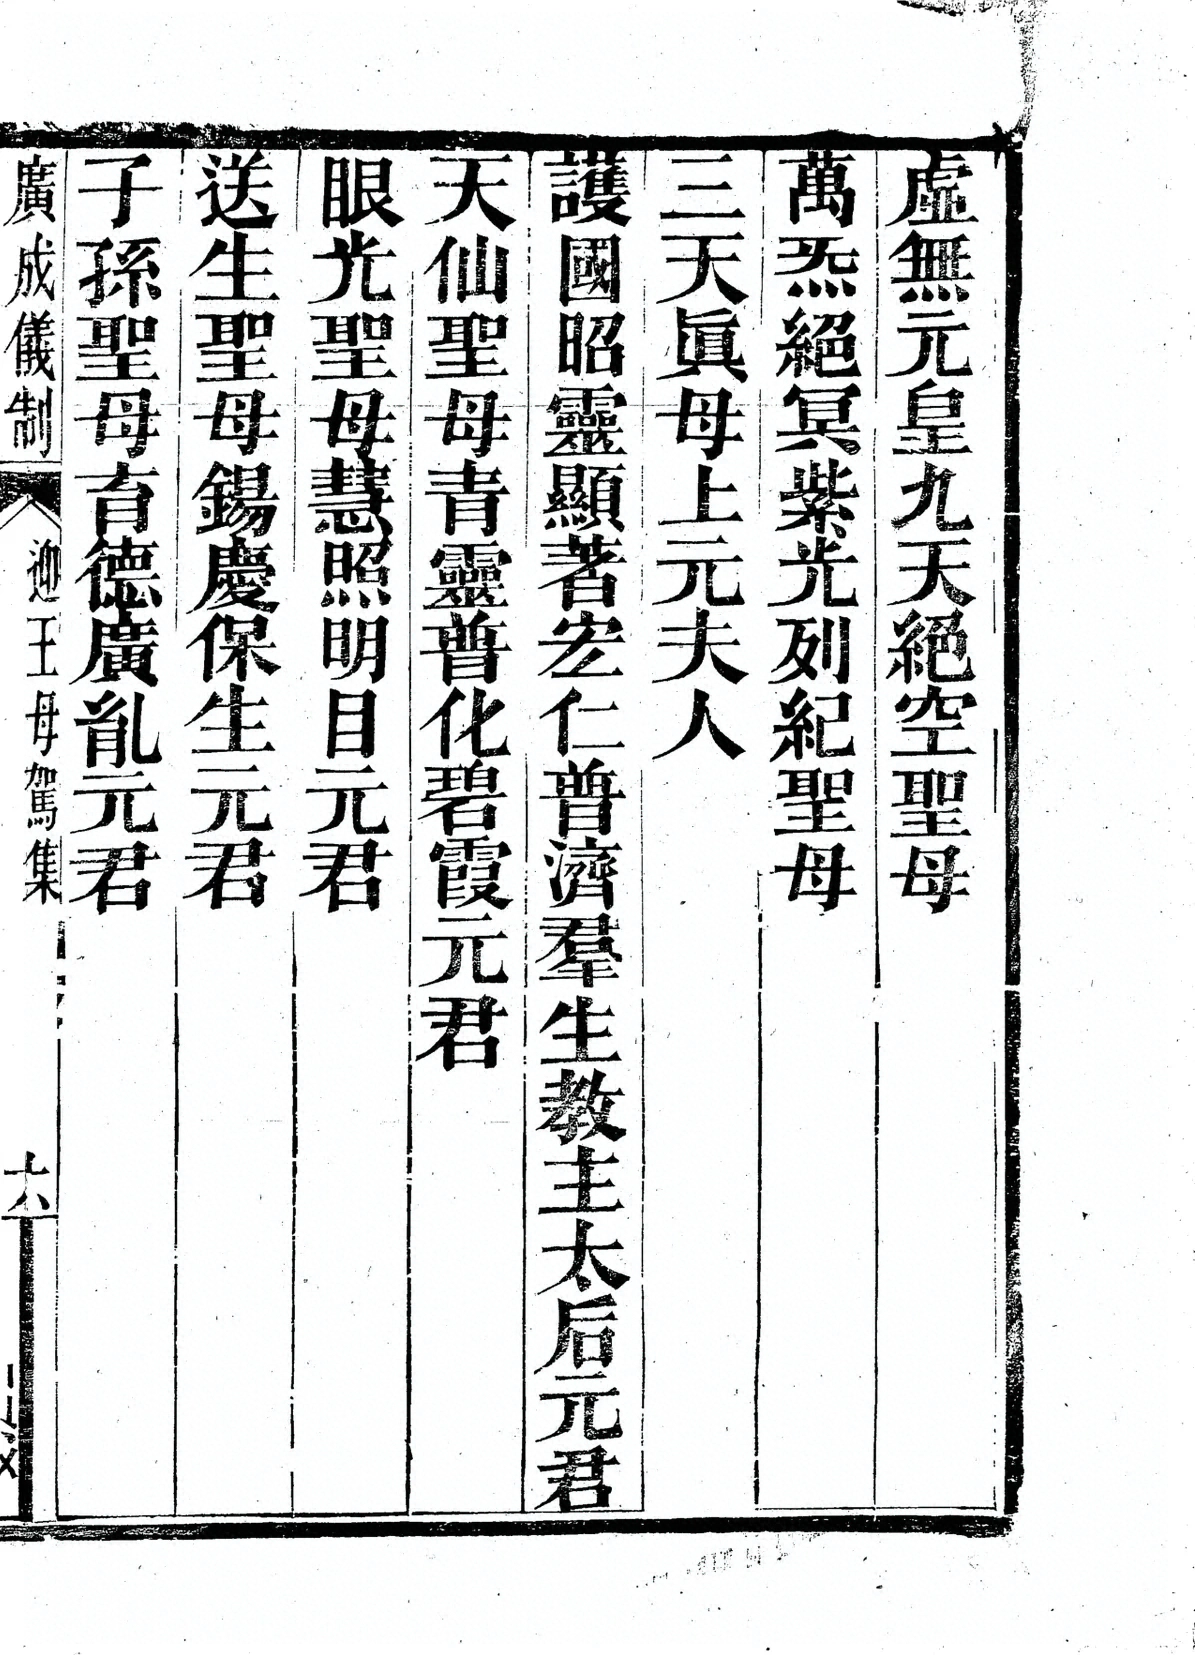 虛無元皇九天絕空聖母
萬炁絕冥紫光列紀聖母
三天眞母上元夫人
護國昭靈顯著宏仁普濟羣生教主太后元君
天仙聖母青靈普化碧霞元君
眼光聖母慧照明目元君
送生聖母錫慶保生元君
子孫聖母育德廣胤元君
廣成儀制 迎王母駕集 六